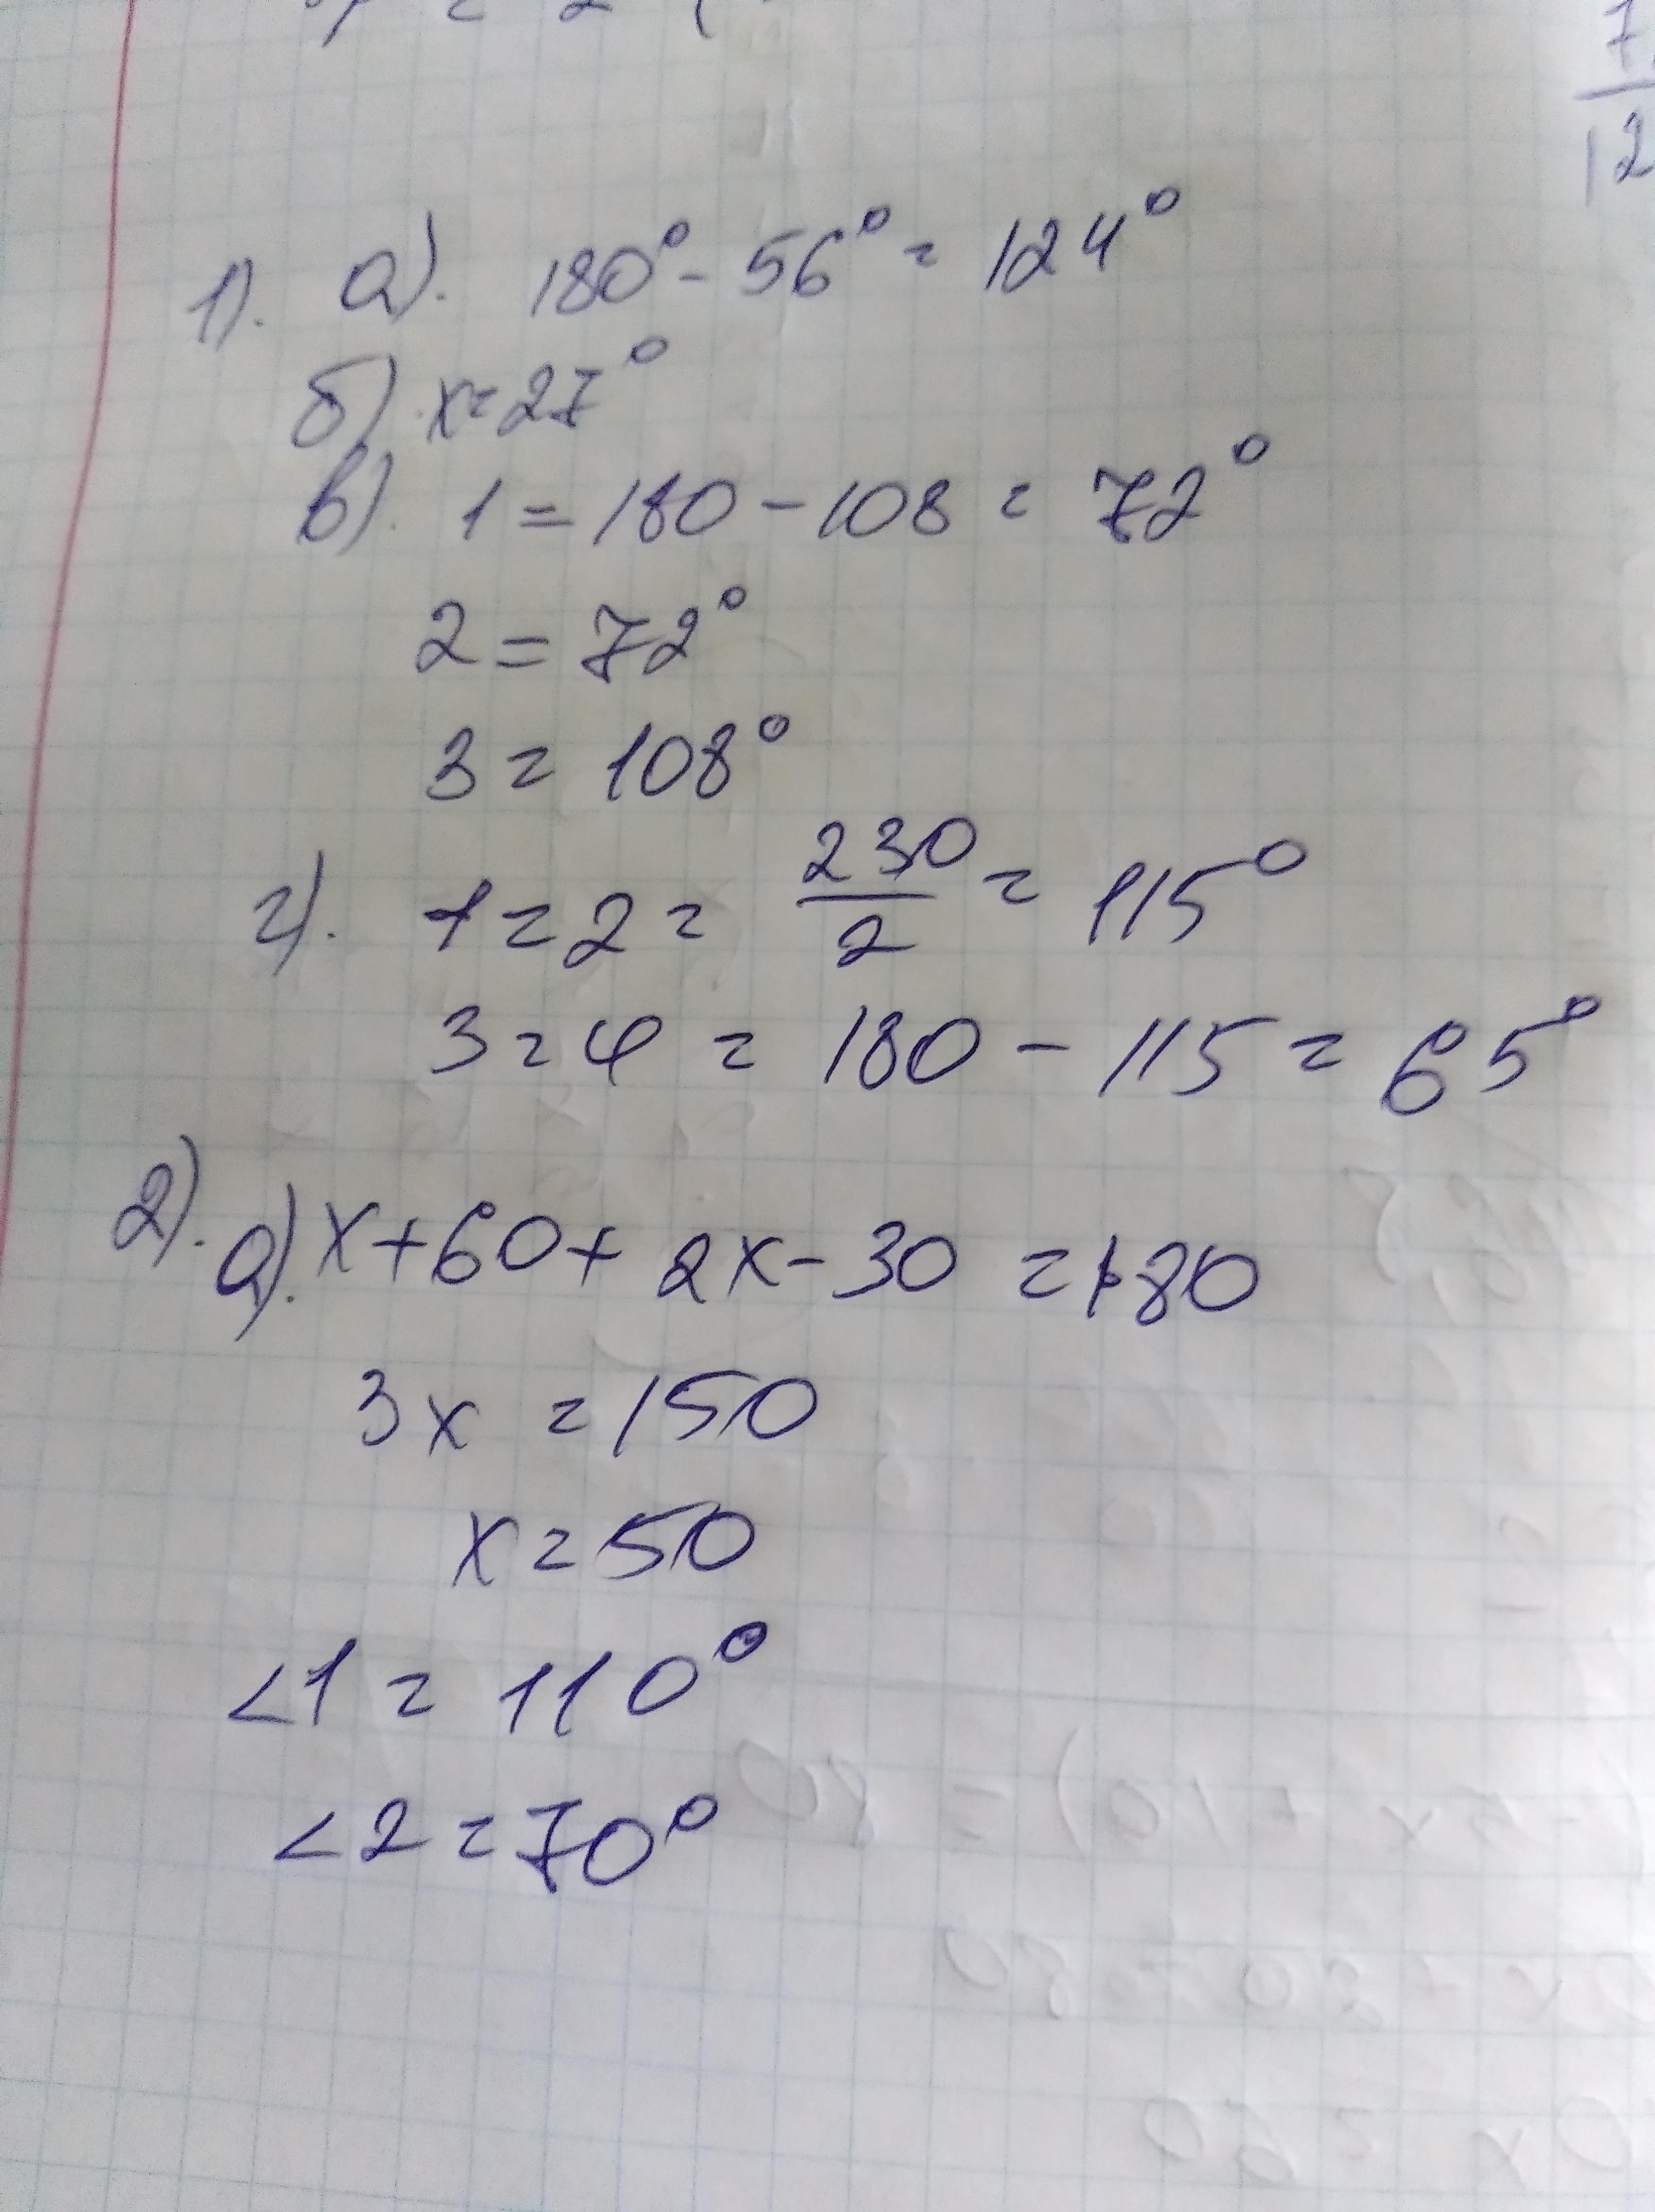 1). а). 180° - 56° = 124°
б) x = 27°
в). 1 = 180 - 108 = 72°
2 = 72°
3 = 108°
г). 1 = 2 = 230/2 = 115°
3 = 4 = 180 - 115 = 65°
2). а). x + 60 + 2x - 30 = 180
3x = 150
x = 50
<1 = 110°
<2 = 70°